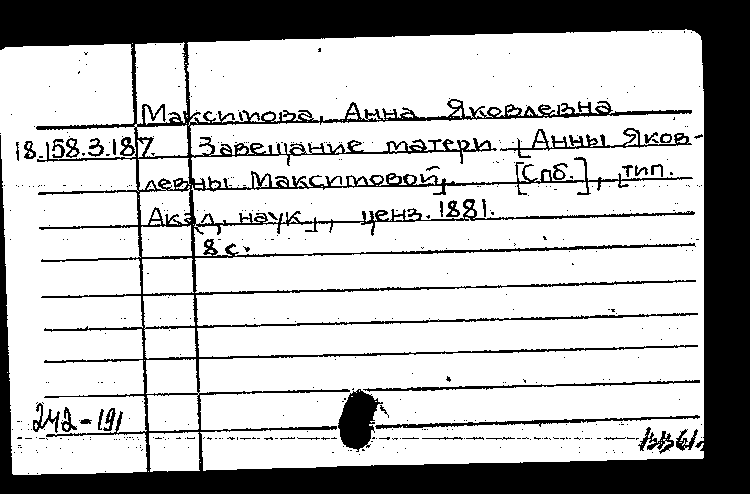 Максимова, Анна Яковлевна
18.158.3.187. Завещание матери [Анны Яков-
левны Максимовой]. [Спб.], [тип.
Акад. наук], ценз. 1881.
8 с.
242-191